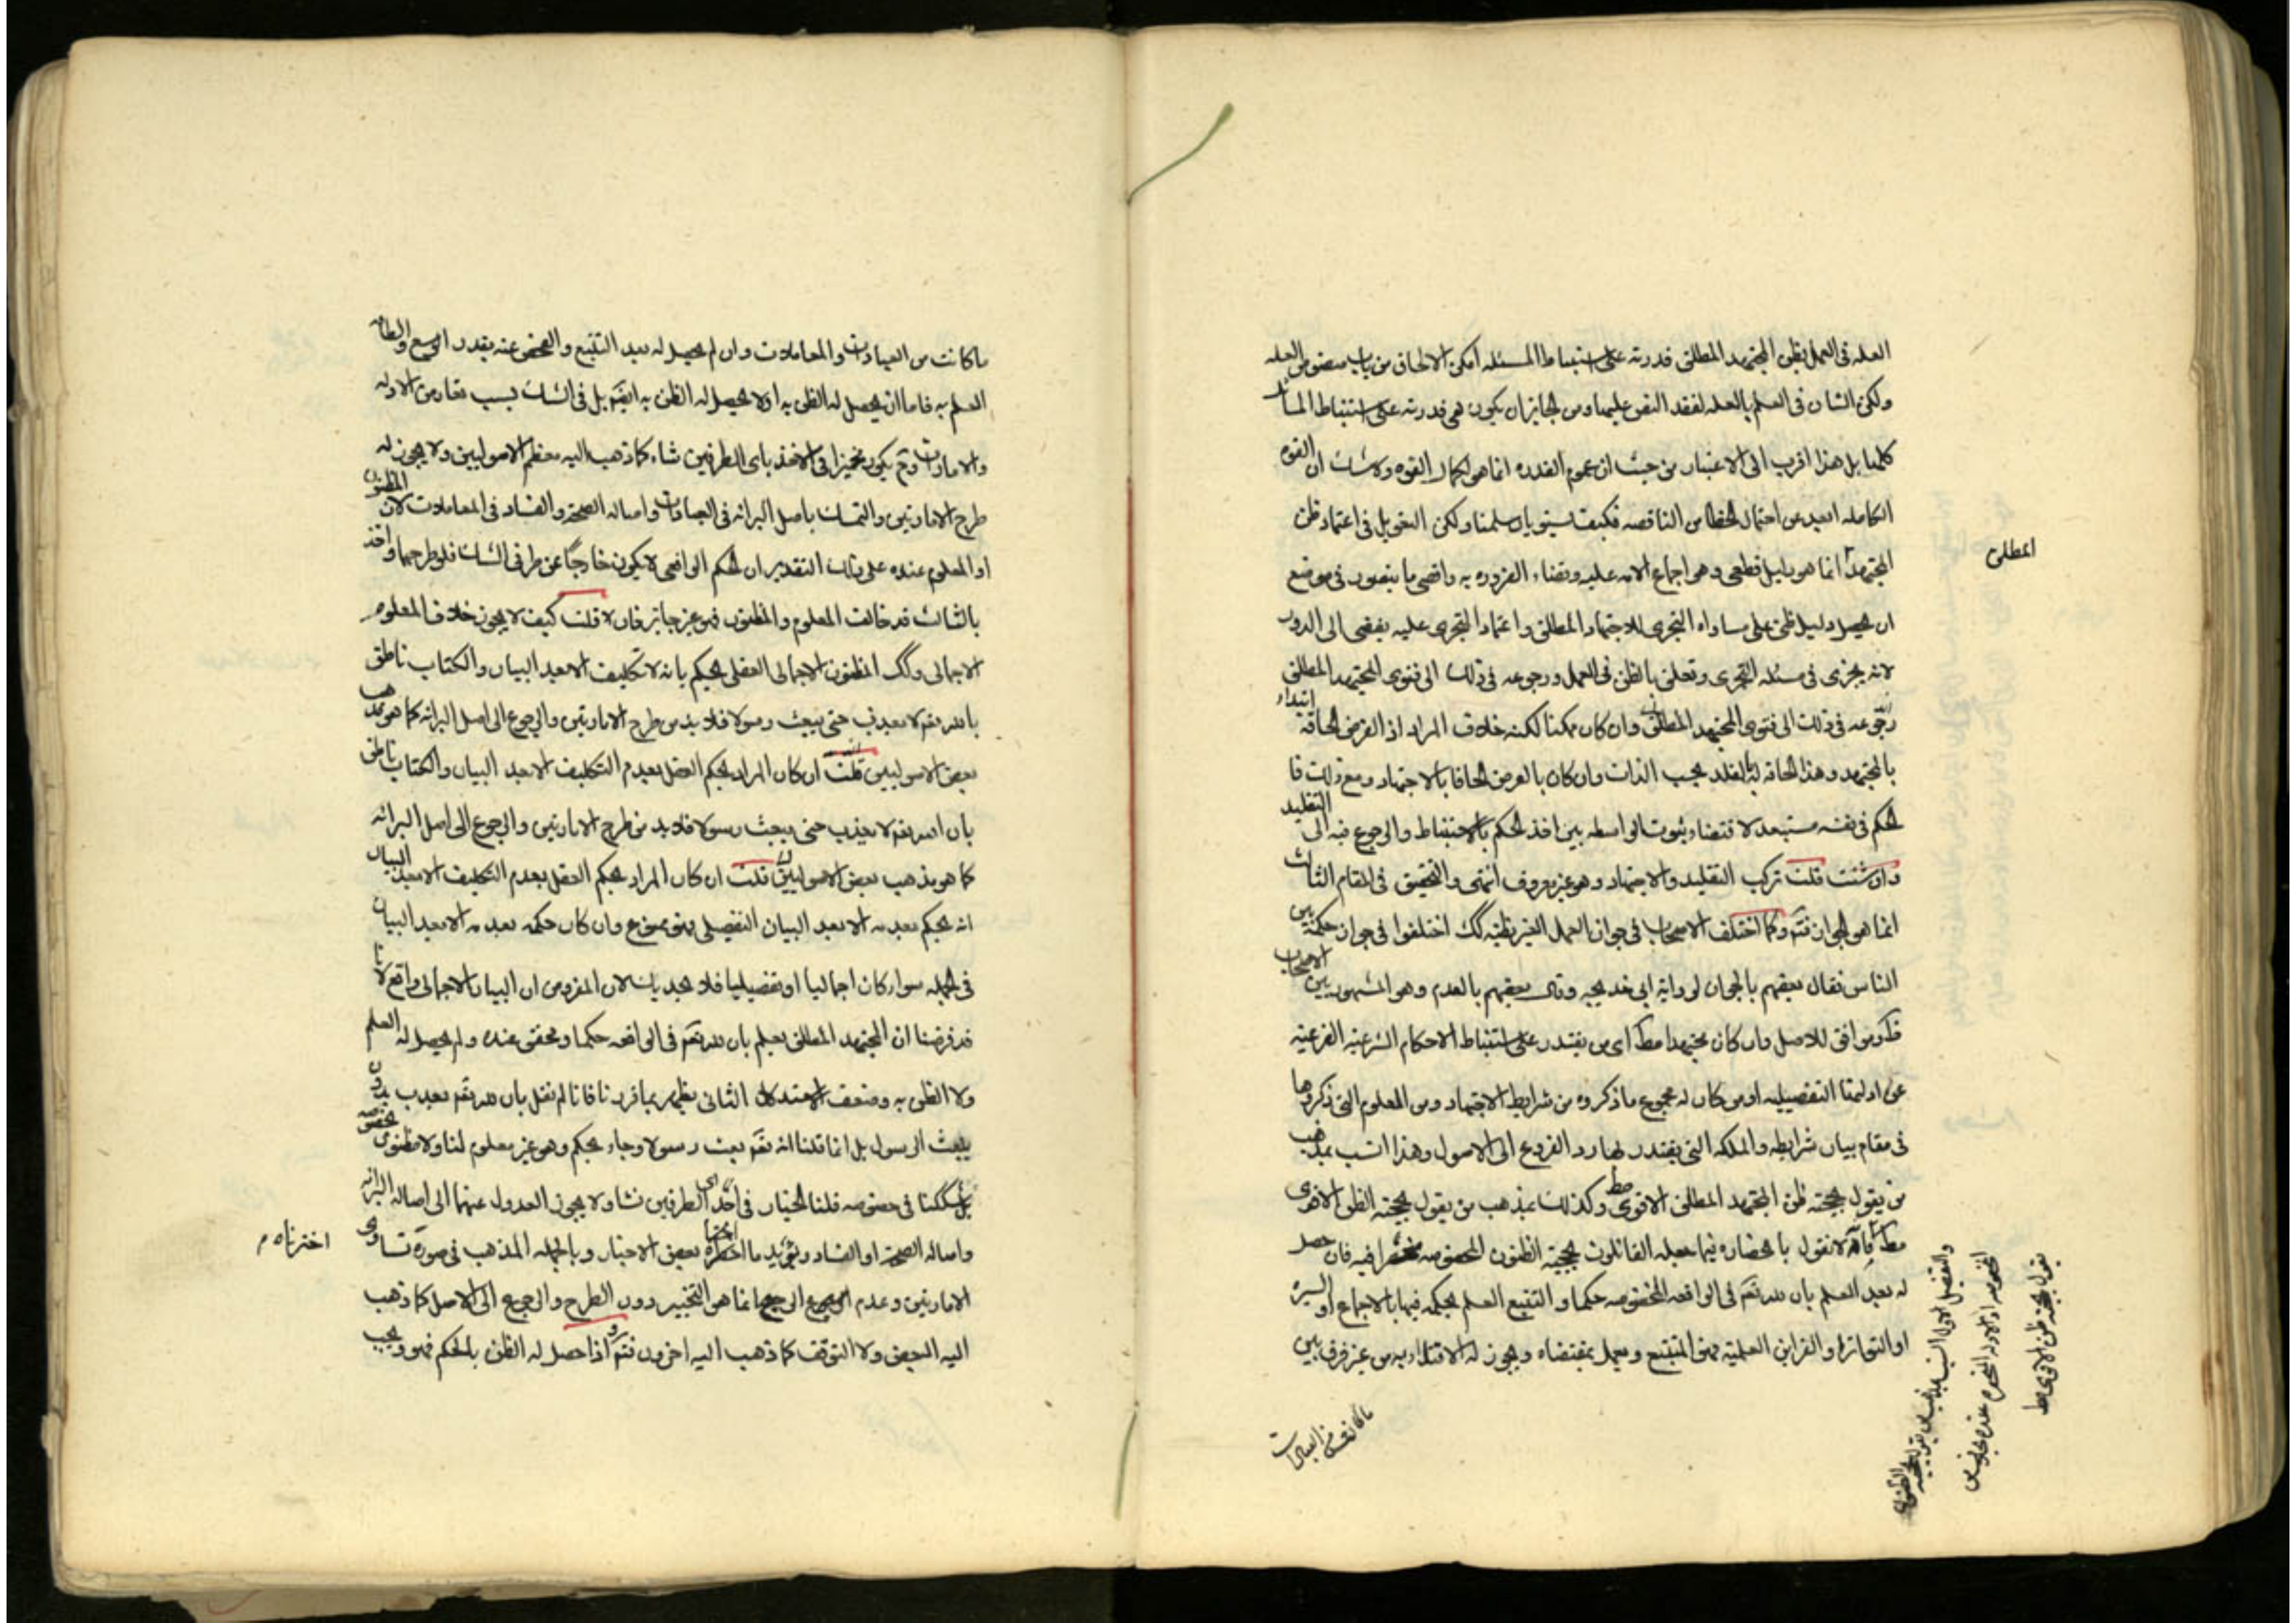 العله فى العمل بظن المجتهد المطلق قدرته على استنباط المسئله امكن الالحاق من باب منصوص العله
ولكن الشان فى العلم بالعله لفقد النص عليها ومن الجايز ان يكون هى قدرته على استنباط المسائل
كلها بل هذا اقرب الى الاعتبار من حيث ان عموم القدره انما هو لكمال القوه ولا شك ان القوه
الكامله ابعد عن احتمال الخطا من الناقصه فكيف يستويان سلمنا ولكن التعويل فى اعتماد ظن
المجتهد انما هو بدليل قطعى وهو اجماع الامه عليه وقضاء الضروره به واقصى ما يتصور فى موضع
المطلق
ان يحصل دليل ظنى على مساواه التجزى للاجتهاد المطلق واعتماد التجزى عليه يفضى الى الدور
لانه تجزى فى مسئله التجزى وتعلق بالظن فى العمل ورجوعه فى ذلك الى فتوى المجتهد المطلق
رجوعه فى ذلك الى فتوى المجتهد المطلق ابتداء وان كان ممكنا لكنه خلاف المراد اذ الفرض الحاقه
بالمجتهد وهذا الحاق له بالمقلد بحسب الذات وان كان بالعرض الحاقا بالاجتهاد ومع ذلك فا
لحكم فى نفسه مستبعد لاقتضاء ثبوت الواسطه بين اخذ الحكم بالاستنباط والرجوع فيه الى التقليد
وان شئت قلت تركب التقليد والاجتهاد وهو غير معروف انتهى والتحقيق فى المقام الثالث
انما هو الجواز ثم وكما اختلف الاصحاب فى جواز العمل لغير بظنه كك اختلفوا فى جواز حكمه بين
الناس فقال بعضهم بالجواز لروايه ابى خديجه وقال بعضهم بالعدم وهو المشهور بين الاصحاب
وموافق للاصل وان كان مجتهدا مط اى من يقتدر على استنباط الاحكام الشرعيه الفرعيه
عن ادلتها التفصيليه او من كان له مجموع ما ذكروه من شرايط الاجتهاد ومن العلوم التى ذكروها
فى مقام بيان شرايطه والملكه التى يقتدر بها رد الفروع الى الاصول وهذا انسب بمذهب
من يقول بحجيه ظن المجتهد المطلق الاقوى مط وكذلك بمذهب من يقول بحجيه الظن الاقوى
والتفصيل الاول انسب بمذهب من يقول بحجيه الظنون
المخصوصه او الادله
يقول بحجيه ظن الاقوى مط
لا نقول بانحصاره فيما جعله القائلون بحجيه الظنون المخصوصه منحصرا فيه فان حصل
له بعد العلم بان لله تعالى فى الواقعه المخصوصه حكما و التتبع العلم بحكمه فيها بالاجماع او السيره
او التواتر او القراين العلميه فهو المتبع ويعمل بمقتضاه ويجوز له الاقتداء به من غير فرق بين
ما كانت من العبادات
ما كانت من العبادات والمعاملات وان لم يحصل له بعد التتبع والفحص عنه بقدر الوسع والطاقه
العلم به فاما ان يحصل له الظن به او لا يحصل له الظن به ايضا بل فى الشك بسبب تعارض الادله
والامارات وح يكون مخيرا فى الاخذ باى الطرفين شاء كما ذهب اليه معظم الاصوليين ولا يجوز له
طرح الامارتين والتمسك باصل البرائه فى العبادات واصاله الصحه والفساد فى المعاملات لان المظنون
او المعلوم عنده على ذلك التقدير ان الحكم الواقعى لا يكون خارجا عن طرفى الشك فلو طرحهما واخذ
بالثالث قد خالف المعلوم والمظنون فهو غير جايز فان قلت كيف لا يجوز خلاف المعلوم
الاجمالى وكك المظنون الاجمالى العقل يحكم بانه لا تكليف الا بعد البيان والكتاب ناطق
بالله تعم لا يعذب حتى يبعث رسولا فلا بد من طرح الامارتين والرجوع الى اصل البرائه كما هو مذهب
بعض الاصوليين قلت ان كان المراد بحكم العقل بعدم التكليف الا بعد البيان والكتاب ناطق
بان الله تعم لا يعذب حتى يبعث رسولا فلا بد من طرح الامارتين والرجوع الى اصل البرائه
كما هو مذهب بعض الاصوليين قلت ان كان المراد بحكم العقل بعدم التكليف الا بعد البيان
انه يحكم بعدمه الا بعد البيان التفصيلى فهو ممنوع وان كان حكمه بعدمه الا بعد البيان
فى الجمله سواء كان اجماليا او تفصيليا فلا يجديك لان المفروض ان البيان الاجمالى واقع لانا
قد فرضنا ان المجتهد المطلق يعلم بان لله تعم فى الواقعه حكما ومحقق عنده ولم يحصل له العلم
ولا الظن به وضعف الاستدلال الثانى يظهر بما قررنا فانا لم نقل بان لله تعم يعذب بدون
يبعث الرسول بل انما قلنا انه تعم بعث رسولا وجاء بحكم وهو غير معلوم لنا ولا مظنون بخصوصه
بل شككنا فى خصوصه فلنا الخيار فى اخذ اى الطرفين نشاء ولا يجوز العدول عنهما الى اصاله البرائه
واصاله الصحه او الفساد ويؤيد ما اخترناه ايضا بعض الاخبار وبالجمله المذهب فى صوره تساوى
اخترناه م
الامارتين وعدم الرجوع الى انما هو التخيير دون الطرح والرجوع الى الاصل كما ذهب
اليه البعض ولا التوقف كما ذهب اليه اخرون ثم و اذا حصل له الظن بالحكم فهو ويجب